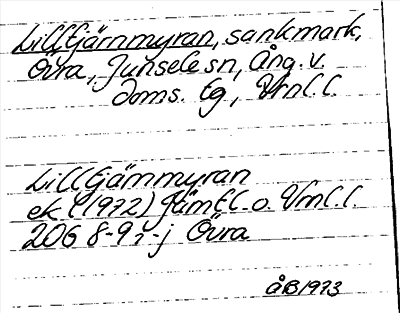 Lilltjärnmyran, sankmark,
Övra, Junsele sn, Ång. v.
doms. tg, Vrnl. l.
Lilltjärnmyran
ek (1972) Jämtl. o. Vrnl. l.
206 8-9 i-j Övra
ÅB 1973